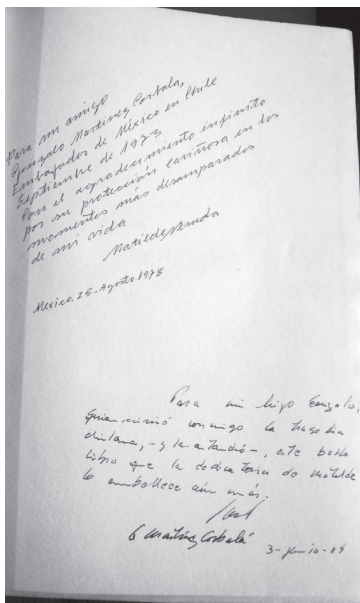 Para mi amigo
Gonzalo Martínez Corbala,
Embajador de México en Chile
Septiembre de 1973
Con el agradecimiento infinito
por su protección cariñosa en los
momentos más desamparados
de mi vida
Matilde Neruda
Mexico, 25-Agosto 1975
Para mi hijo Gonzalo,
quien vivió conmigo la tragedia
chilena, -y la entendió-, este bello
libro que la dedicatoria de Matilde
lo embellece aún más.
G Martínez Corbalá
3-junio-84